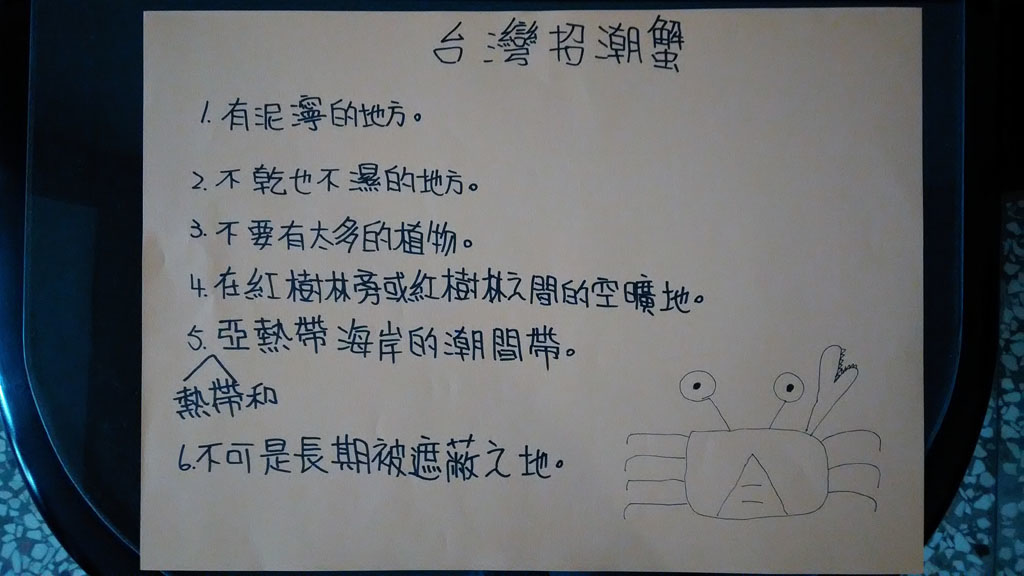 台灣招潮蟹
1. 有泥濘的地方。
2. 不乾也不濕的地方。
3. 不要有太多的植物。
4. 在紅樹林旁或紅樹林之間的空曠地。
5. 亞熱帶海岸的潮間帶。
熱帶和
6. 不可是長期被遮蔽之地。